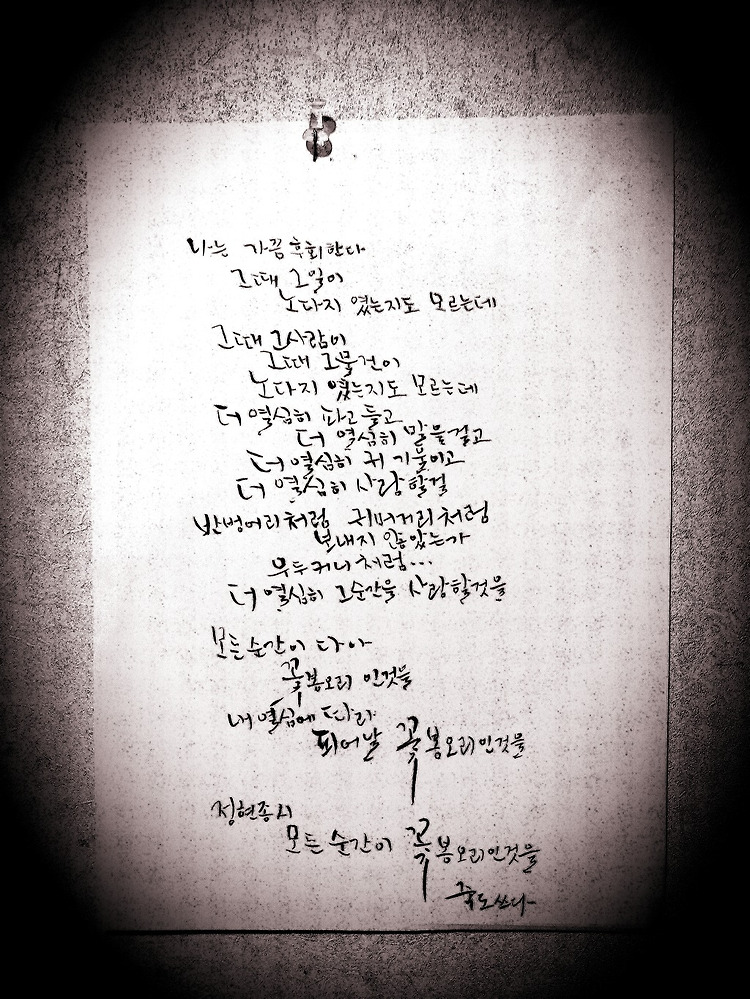 나는 가끔 후회한다
그때 그일이
노다지 였는지도 모르는데
그때 그사람이
그때 그물건이
노다지 였는지도 모르는데
더 열심히 파고 들고
더 열심히 말을걸고
더 열심히 귀 기울이고
더 열심히 사랑할걸
반벙어리처럼 귀머거리처럼
보내지 않았는가
우두커니처럼...
더 열심히 그순간을 사랑할것을
모든순간이 다아
꽃봉오리 인것을
내 열심에 따라
피어날 꽃봉오리인것을
정현종 시
모든 순간이 꽃봉오리인것을
죽도쓰다